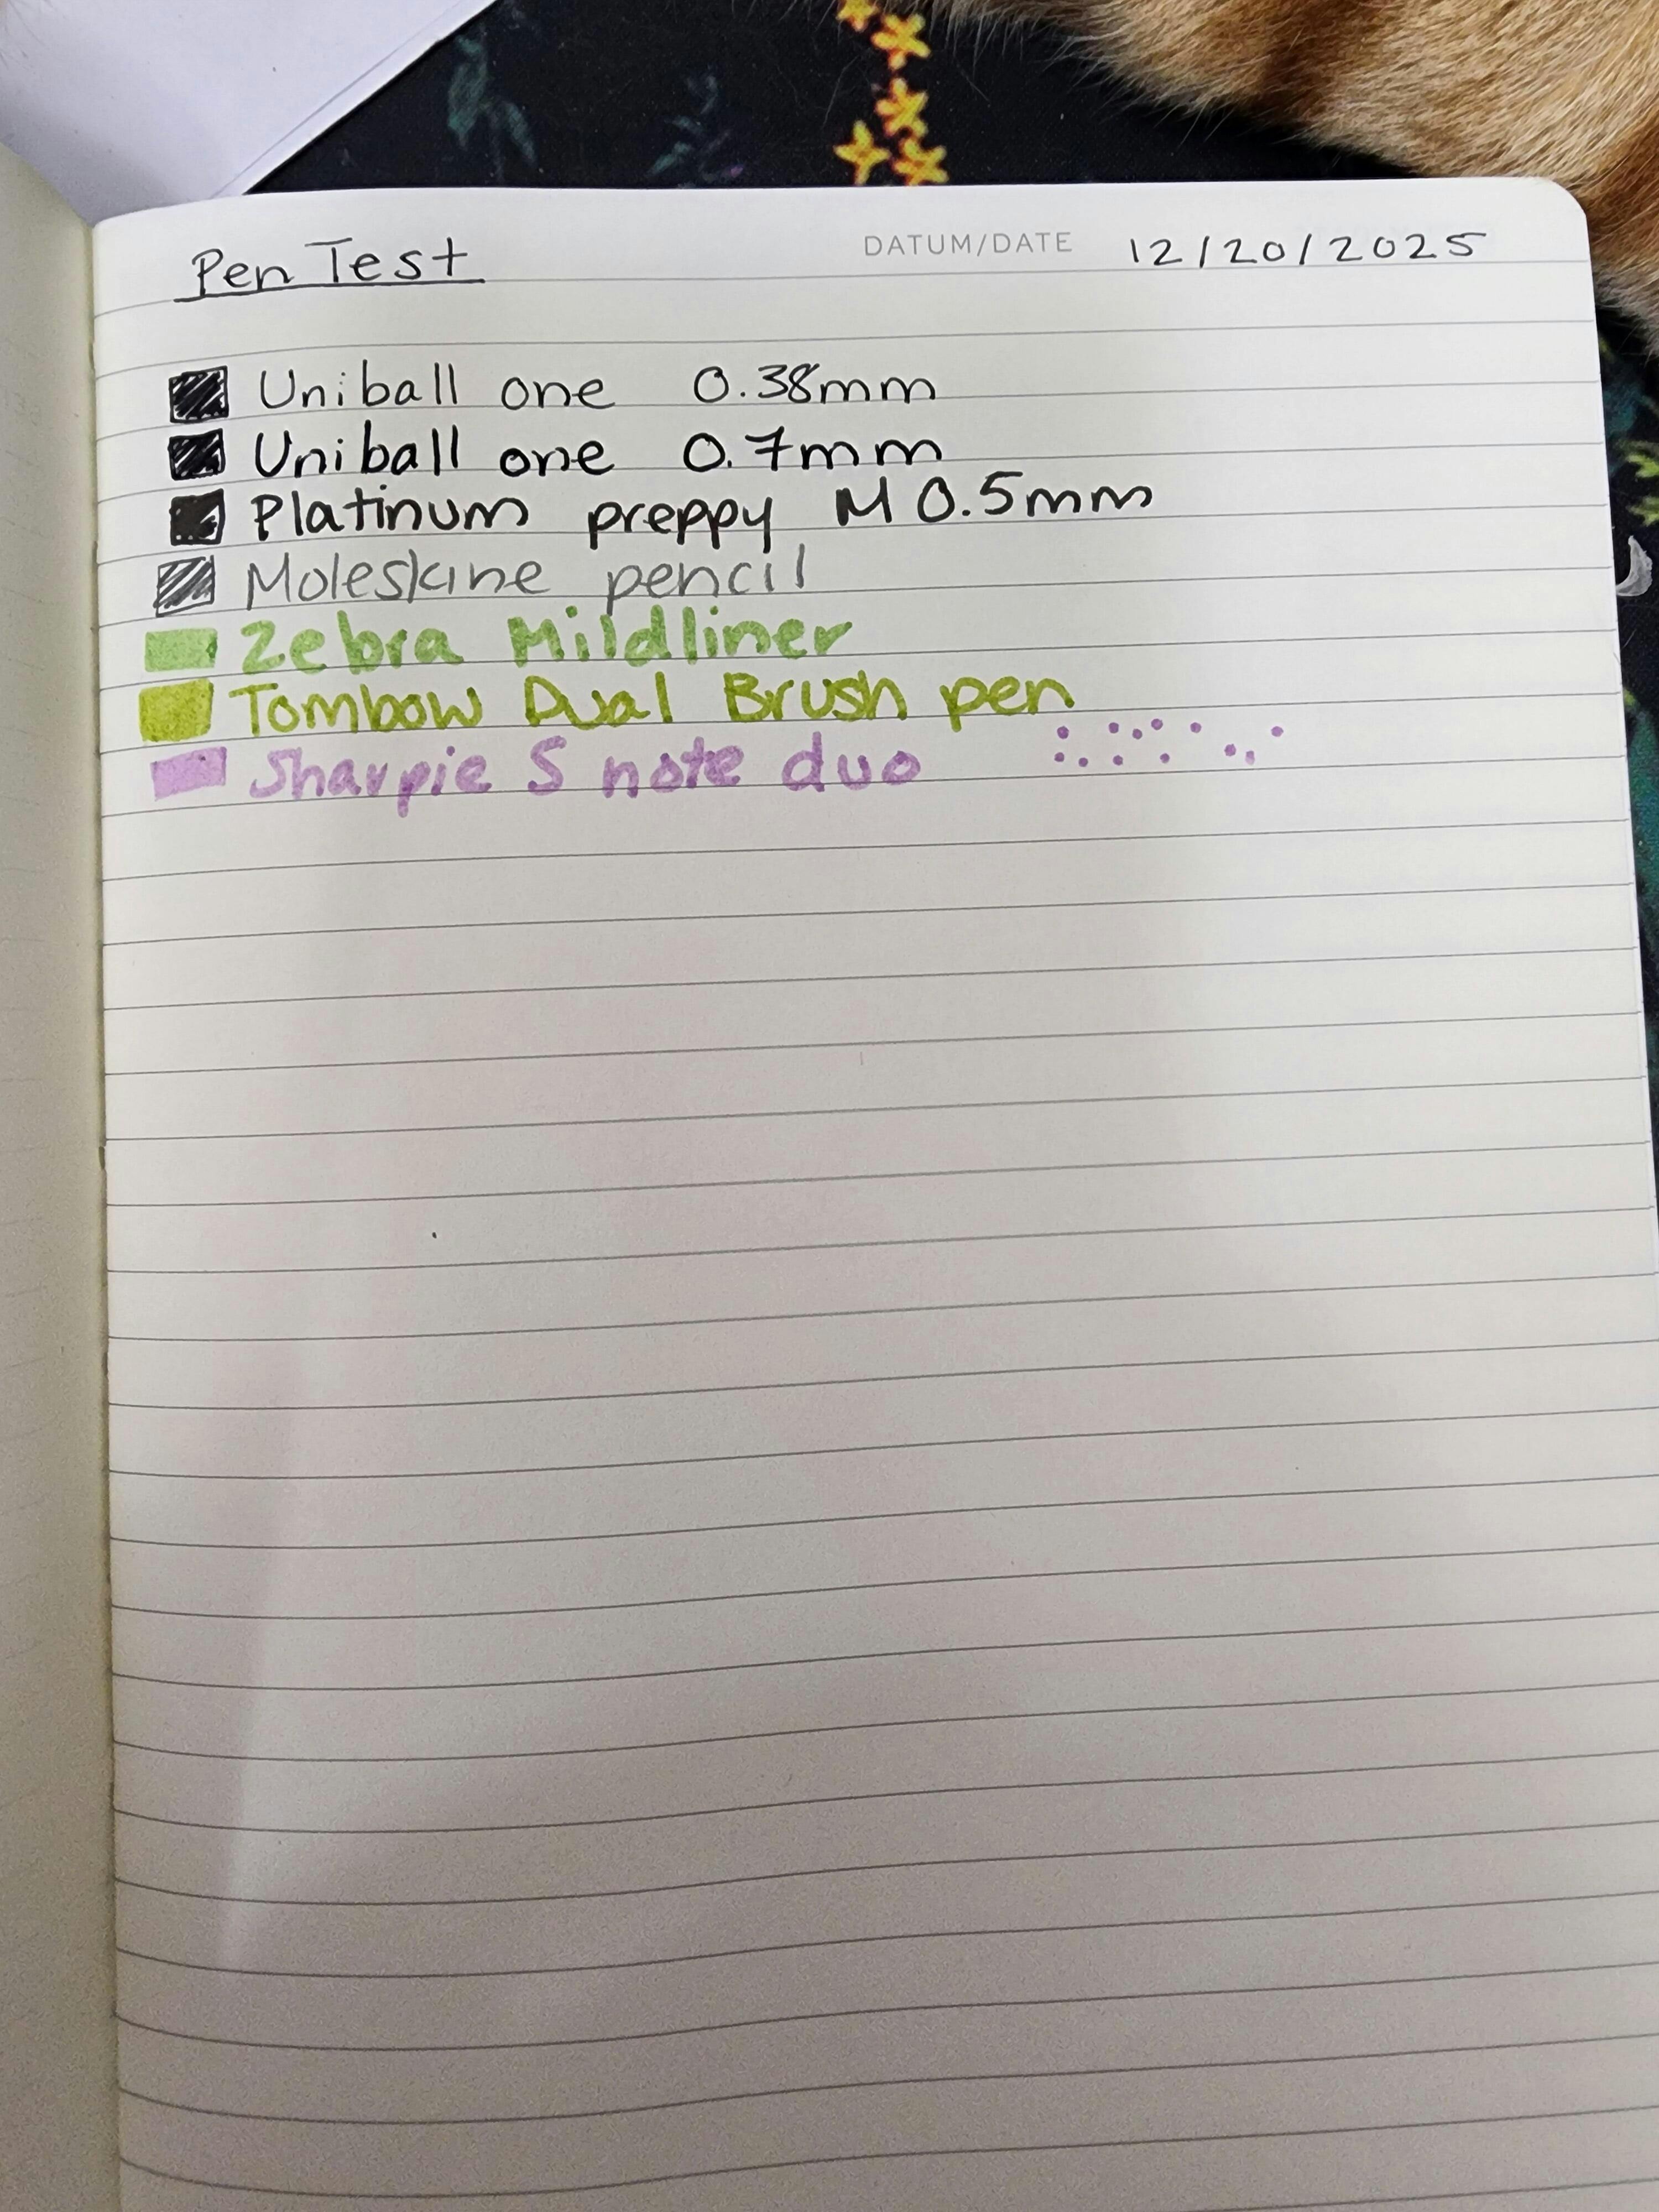 Pen Test DATUM/DATE 12/20/2025
Uniball one 0.38mm
Uniball one 0.7mm
Platinum preppy M 0.5mm
Moleskine pencil
Zebra Mildliner
Tombow Dual Brush pen
Sharpie S note duo